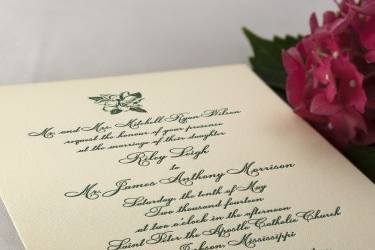 Mr. and Mrs. Mitchell Ryan Wilson
request the honour of your presence
at the marriage of their daughter
Riley Leigh
to
Mr. James Anthony Morrison
Saturday, the tenth of May
Two thousand fourteen
at two o'clock in the afternoon
Saint Peter the Apostle Catholic Church
Jackson, Mississippi